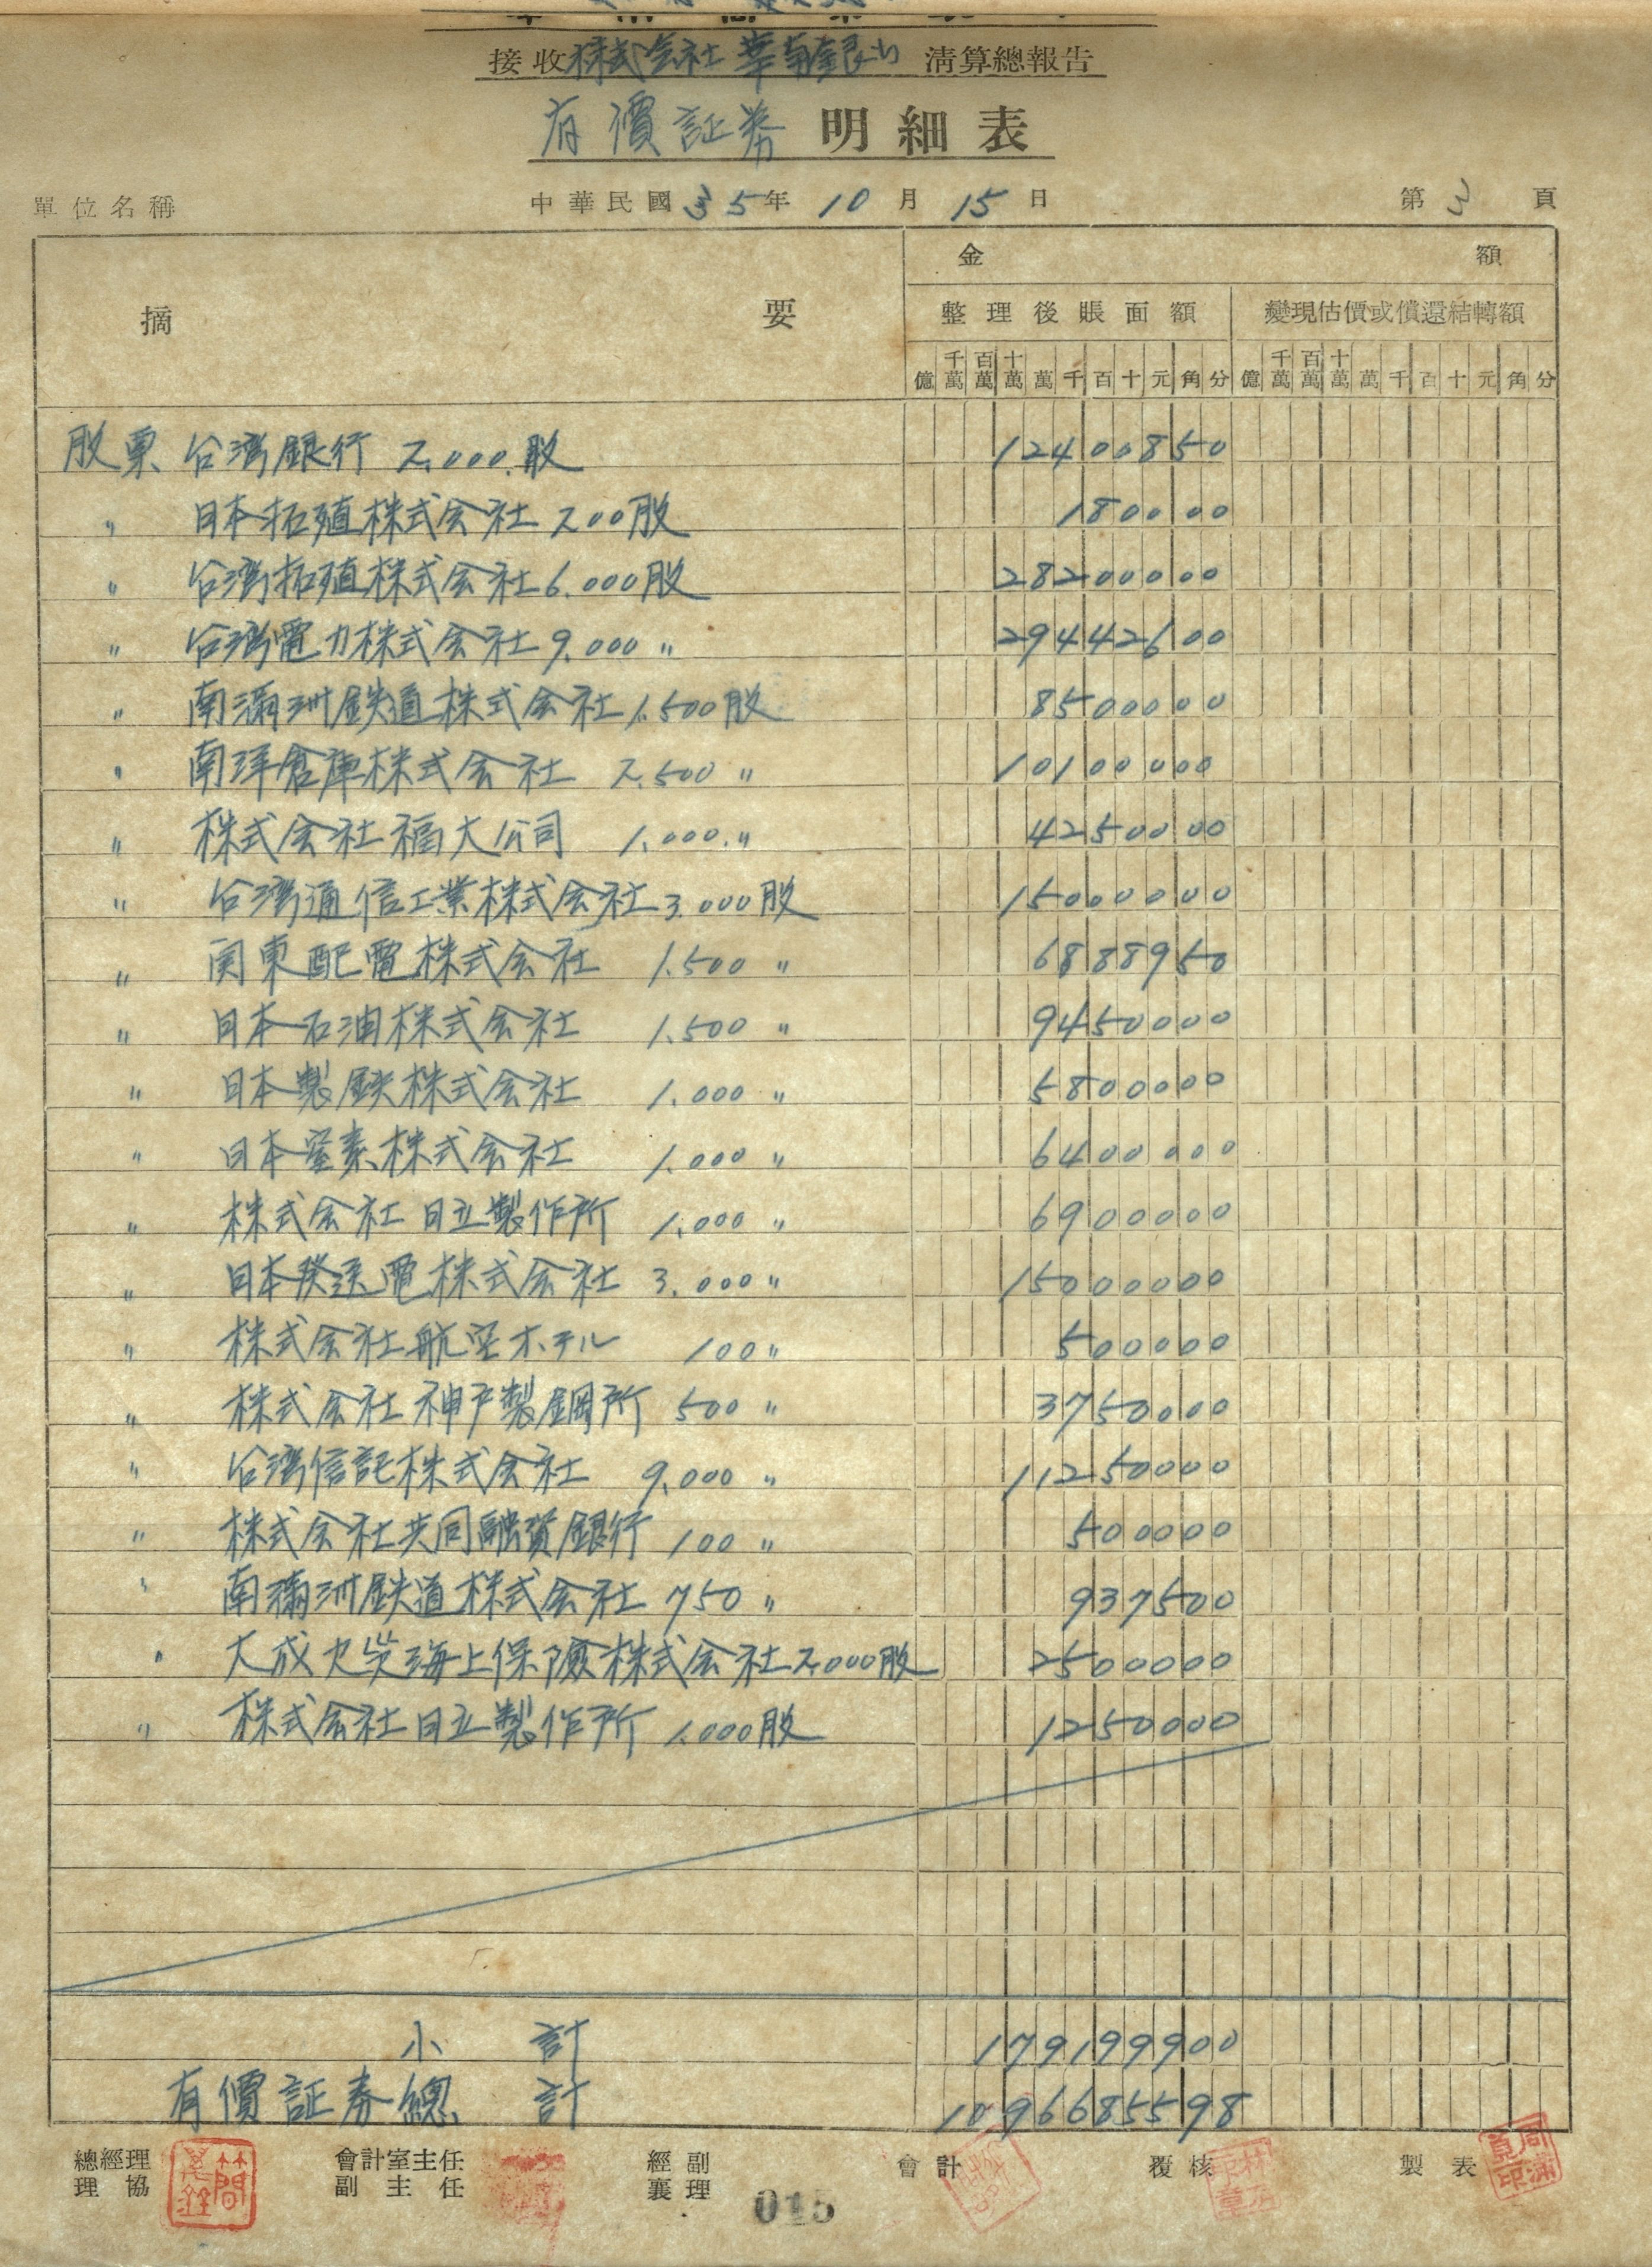 接收株式会社華南銀行 清算總報告
有價証券明細表
單位名稱 中華民國35年10月15日 第3頁
摘要 金額
整理後賬面額 變現估價或償還結轉額
億 千萬 百萬 十萬 萬 千 百 十 元 角 分 億 千萬 百萬 十萬 萬 千 百 十 元 角 分
股票 台湾銀行 2,000.股 12400850
〃 日本拓殖株式会社 200股 180000
〃 台湾拓殖株式会社 6.000股 28200000
〃 台湾電力株式会社 9.000〃 29442600
〃 南満洲鉄道株式会社 1.500股 8500000
〃 南洋倉庫株式会社 2.500〃 10100000
〃 株式会社福大公司 1.000.〃 4250000
〃 台湾通信工業株式会社 3.000股 15000000
〃 関東配電株式会社 1.500〃 6888950
〃 日本石油株式会社 1.500〃 9450000
〃 日本製鉄株式会社 1.000〃 5800000
〃 日本窒素株式会社 1.000〃 6400000
〃 株式会社日立製作所 1.000〃 6900000
〃 日本発送電株式会社 3.000〃 15000000
〃 株式会社航空ホテル 100〃 500000
〃 株式会社神戸製鋼所 500〃 3750000
〃 台湾信託株式会社 9.000〃 11250000
〃 株式会社共同融資銀行 100〃 500000
〃 南満洲鉄道株式会社 750〃 937500
〃 大成火災海上保険株式会社 2,000股 2500000
〃 株式会社日立製作所 1.000股 1250000
小計 179199900
有價証券總計 1096685598
總經理 會計室主任 經副 會計 覆核 製表
理協 副主任 襄理
015